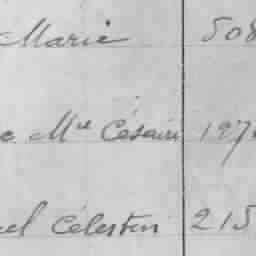 Marie 508
Mel Césaire 197
Célestin 215